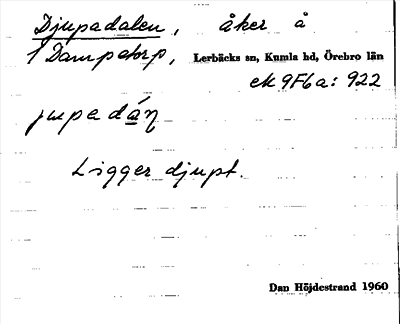 Djupadalen, åker å
1 Dampetorp, Lerbäcks sn, Kumla hd, Örebro län
ek 9F6a: 922
jupadán
Ligger djupt.
Dan Höjdestrand 1960